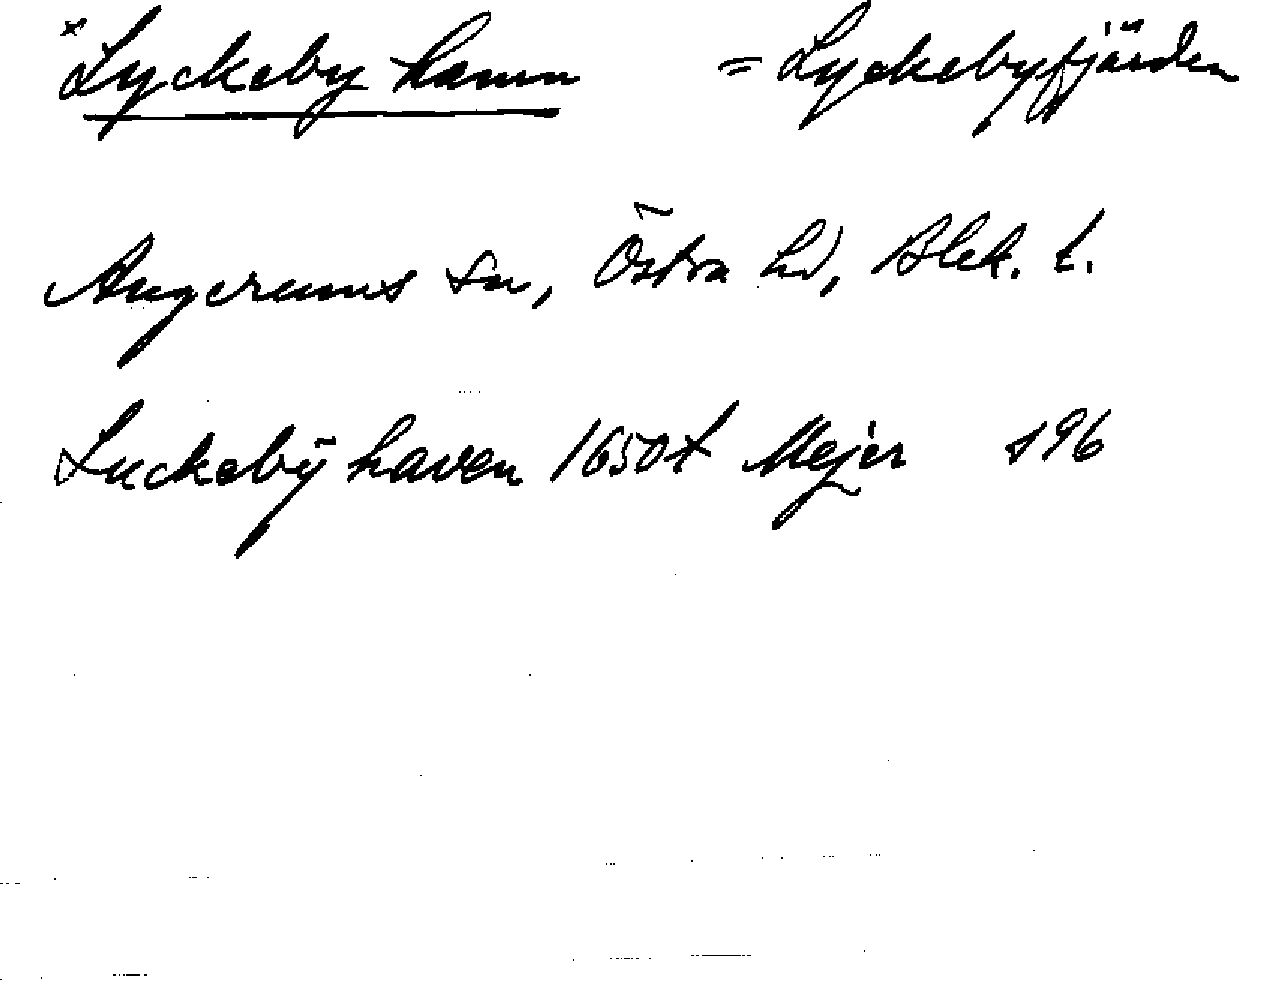 ×Lyckeby hamn = Lyckebyfjärden
Augerums sn, Östra hd, Blek. l.
Luckebÿ haven 1650t Mejer s96